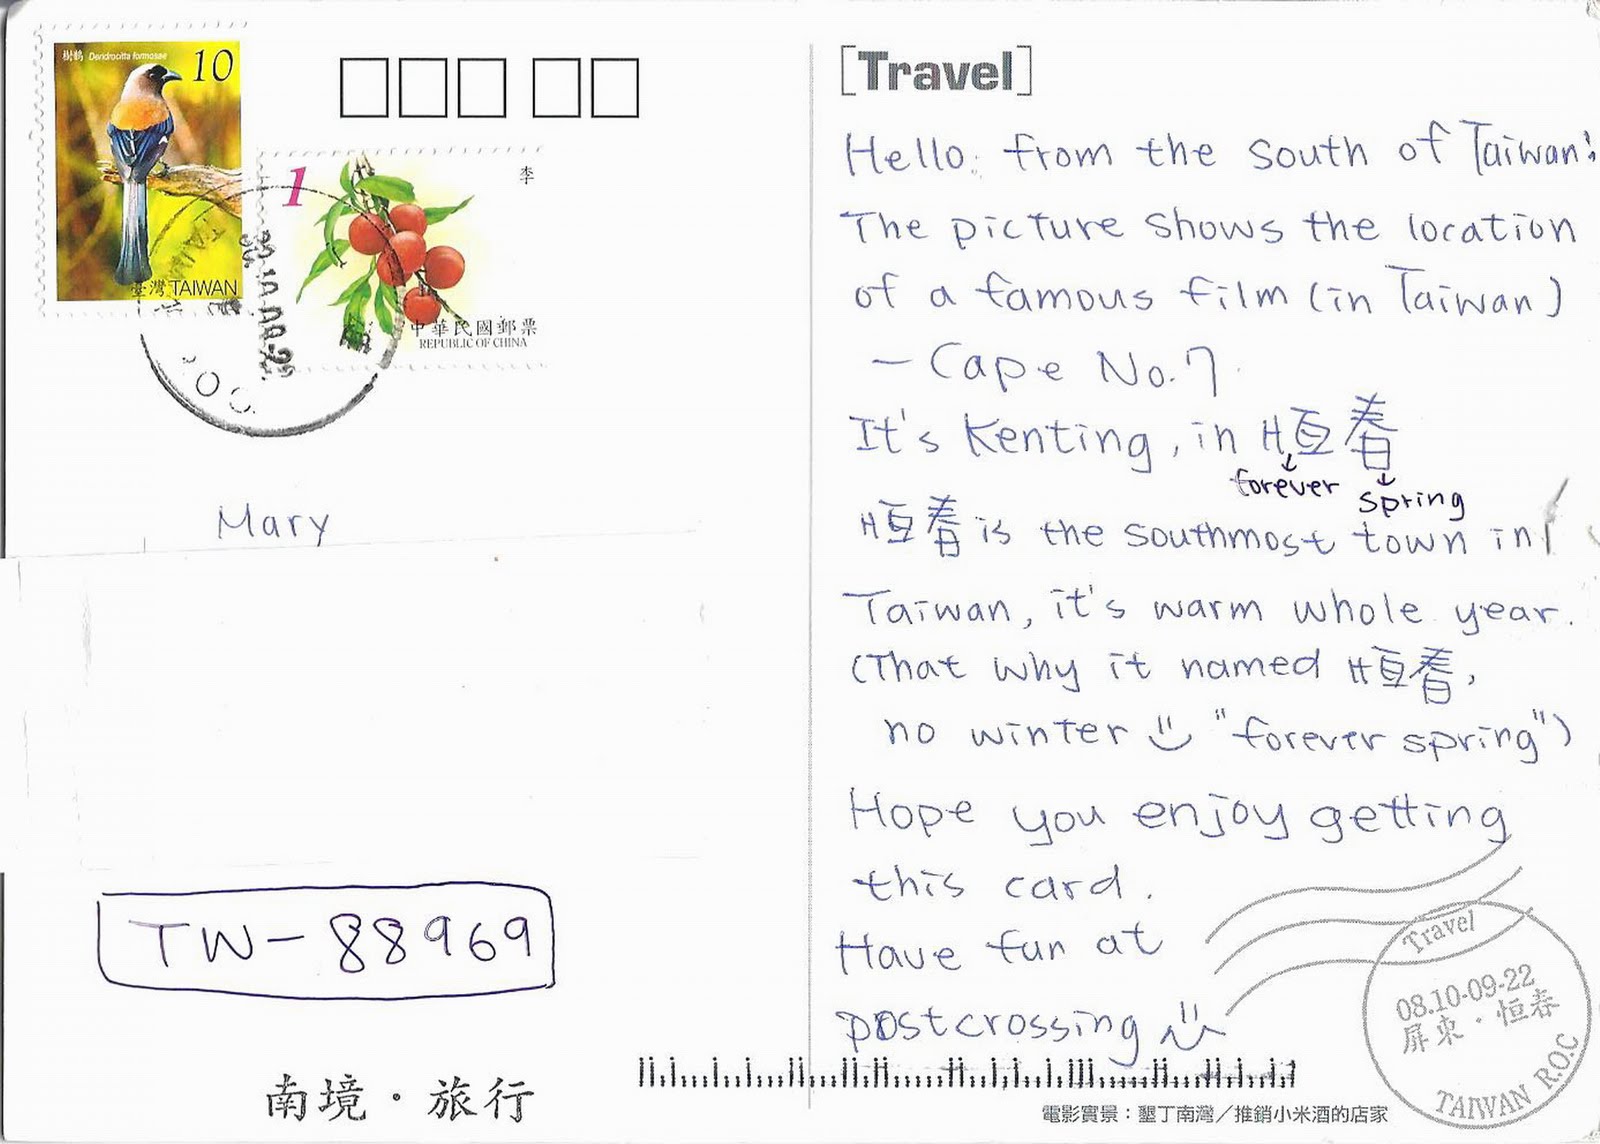 樹鵲 Dendrocitta formosae 10
臺灣 TAIWAN
1
李
中華民國郵票
REPUBLIC OF CHINA
Mary
TW-88969
南境・旅行
[Travel]
Hello: from the south of Taiwan:
The picture shows the location
of a famous film (in Taiwan)
— Cape No.7.
It's Kenting, in 恒春
forever
spring
恒春 is the southmost town in
Taiwan, it's warm whole year.
(That why it named 恒春,
no winter "forever spring")
Hope you enjoy getting
this card.
Have fun at
postcrossing
Travel
08.10-09-22
屏東・恒春
TAIWAN R.O.C
電影實景：墾丁南灣／推銷小米酒的店家